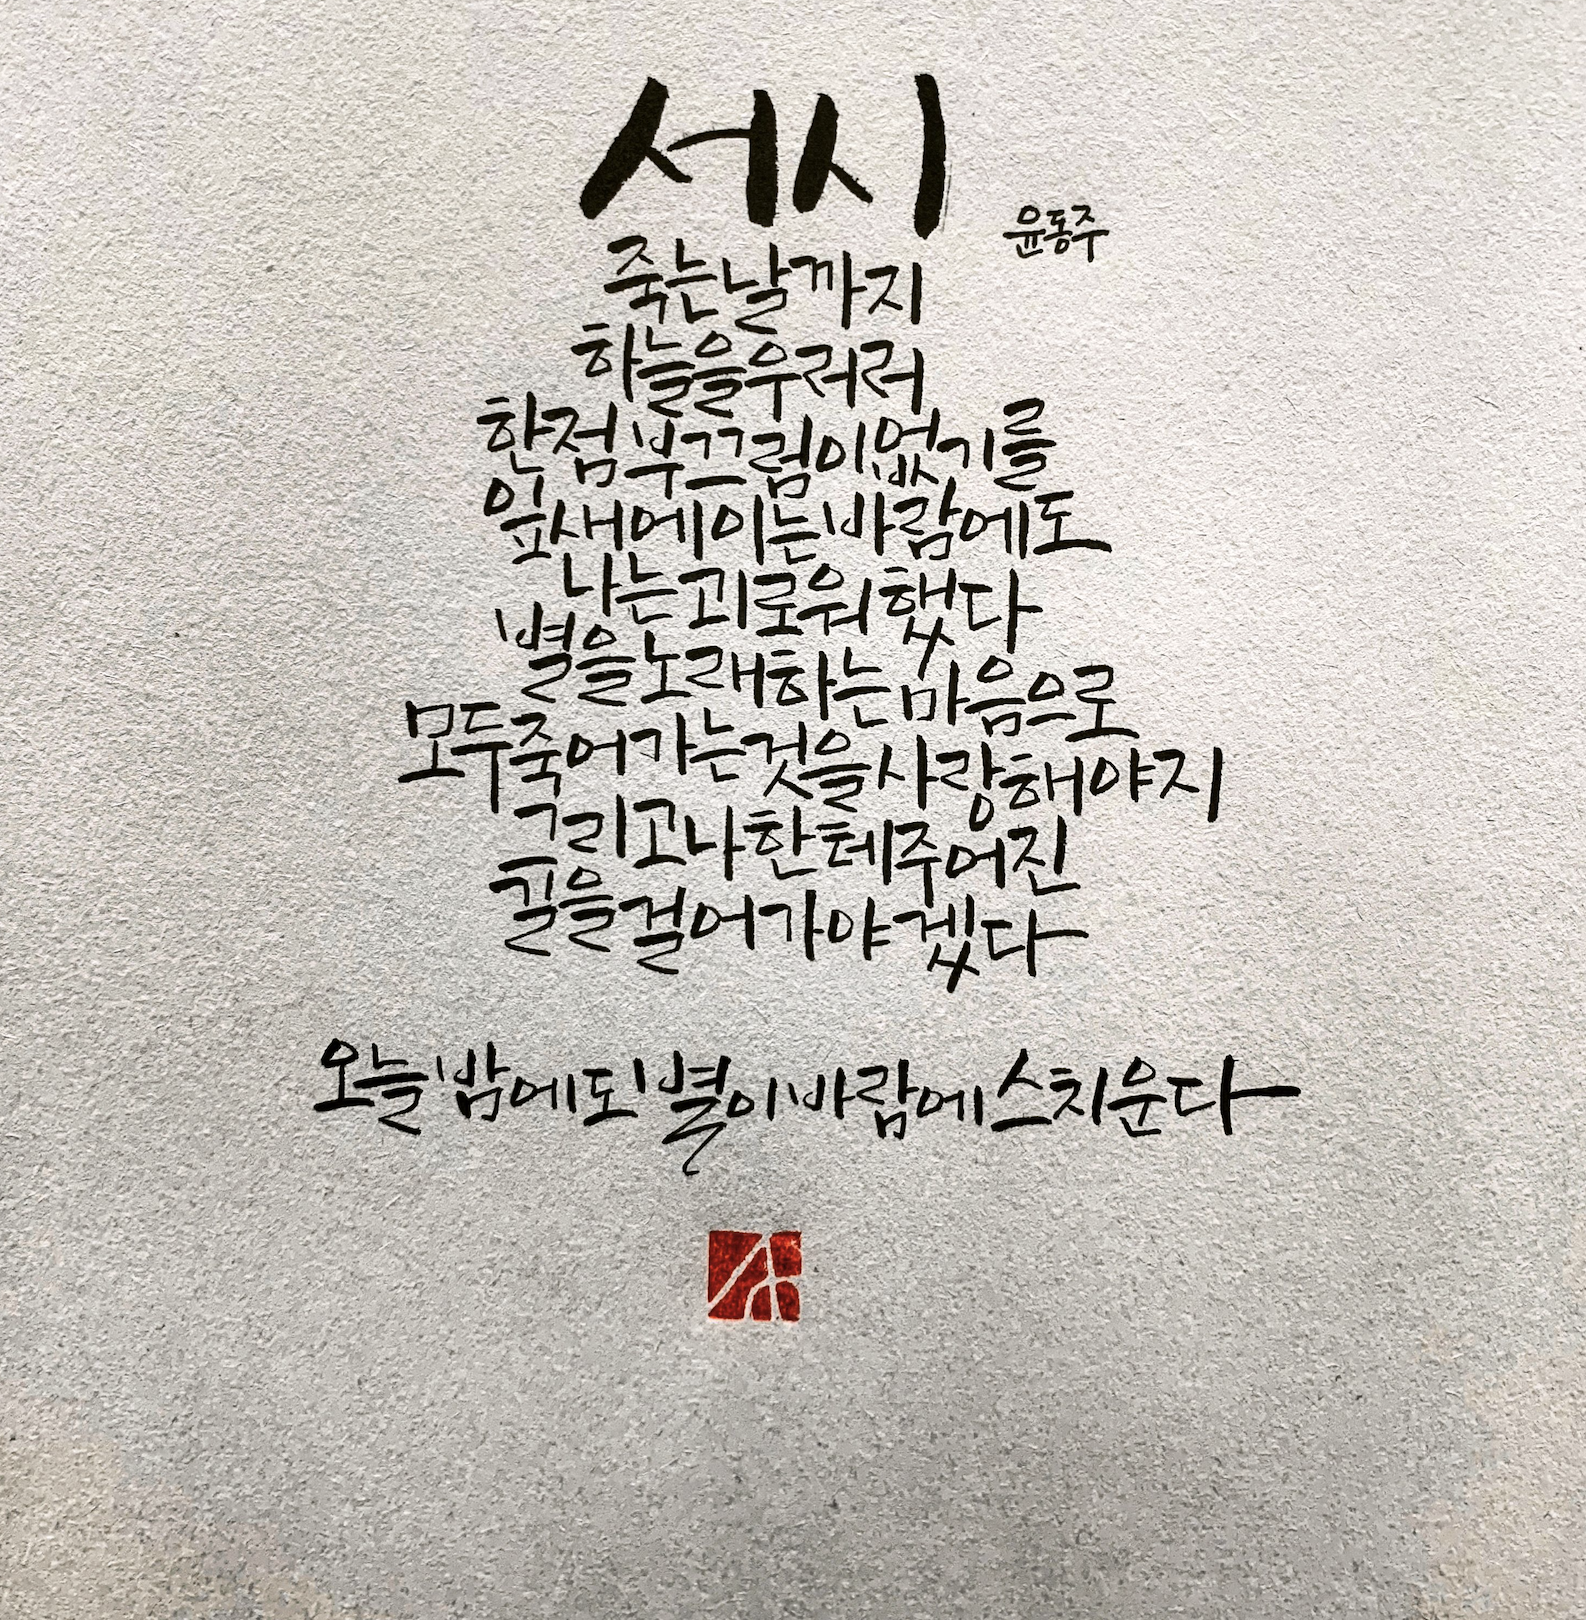 서시
윤동주
죽는날까지
하늘을우러러
한점부끄럼이없기를
잎새에이는바람에도
나는괴로워했다
별을노래하는마음으로
모두죽어가는것을사랑해야지
그리고나한테주어진
길을걸어가야겠다
오늘밤에도별이바람에스치운다